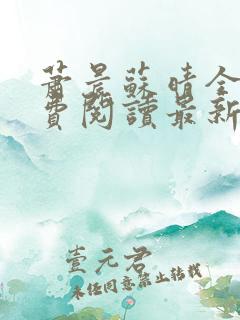 蕭晨蘇晴全
費閱讀最新
壹元君
未經同意禁止轉載